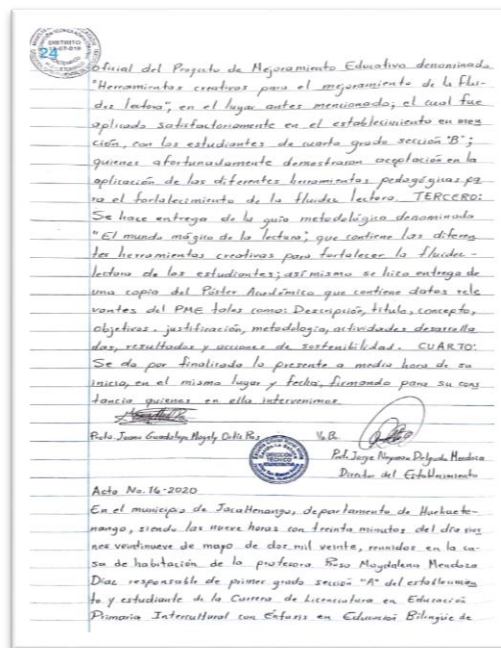 DISTRITO
24
oficial del Proyecto de Mejoramiento Educativo denominado
"Herramientas creativas para el mejoramiento de la flui-
dez lectora", en el lugar antes mencionado; el cual fue
aplicado satisfactoriamente en el establecimiento en men
ción, con los estudiantes de cuarto grado sección "B";
quienes afortunadamente demostraron aceptación en la
aplicación de las diferentes herramientas pedagógicas pa
ra el fortalecimiento de la fluidez lectora. TERCERO:
Se hace entrega de la guía metodológica denominada
"El mundo mágico de la lectura", que contiene las diferen
tes herramientas creativas para fortalecer la fluidez
lectora de los estudiantes; así mismo se hizo entrega de
una copia del Póster Académico que contiene datos rele
vantes del PME tales como: Descripción, título, concepto,
objetivos, justificación, metodología, actividades desarrolla
das, resultados y acciones de sostenibilidad. CUARTO:
Se da por finalizada la presente a media hora de su
inicio, en el mismo lugar y fecha, firmando para su cons
tancia quienes en ella intervenimos.
Profa. Juana Guadalupe Magaly Ortiz Ros Vo.Bo.
DIRECCIÓN
TÉCNICO
Prof. Jorge Neyman Delgado Mendoza
Director del Establecimiento
Acta No. 16-2020
En el municipio de Jacaltenango, departamento de Huehuete-
nango, siendo las nueve horas con treinta minutos del día vier
nes veintinueve de mayo de dos mil veinte, reunidos en la ca-
sa de habitación de la profesora Rosa Magdalena Mendoza
Díaz responsable de primer grado sección "A" del establecimien
to y estudiante de la Carrera de Licenciatura en Educación
Primaria Intercultural con Énfasis en Educación Bilingüe de